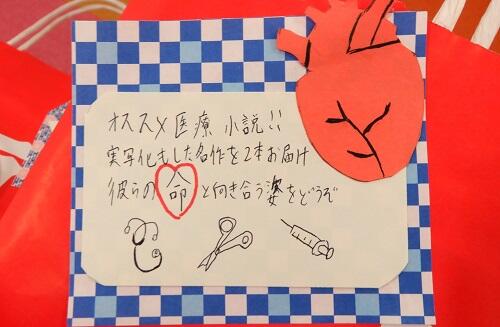 オススメ医療小説!!
実写化もした名作を2本お届け
彼らの命と向き合う姿をどうぞ